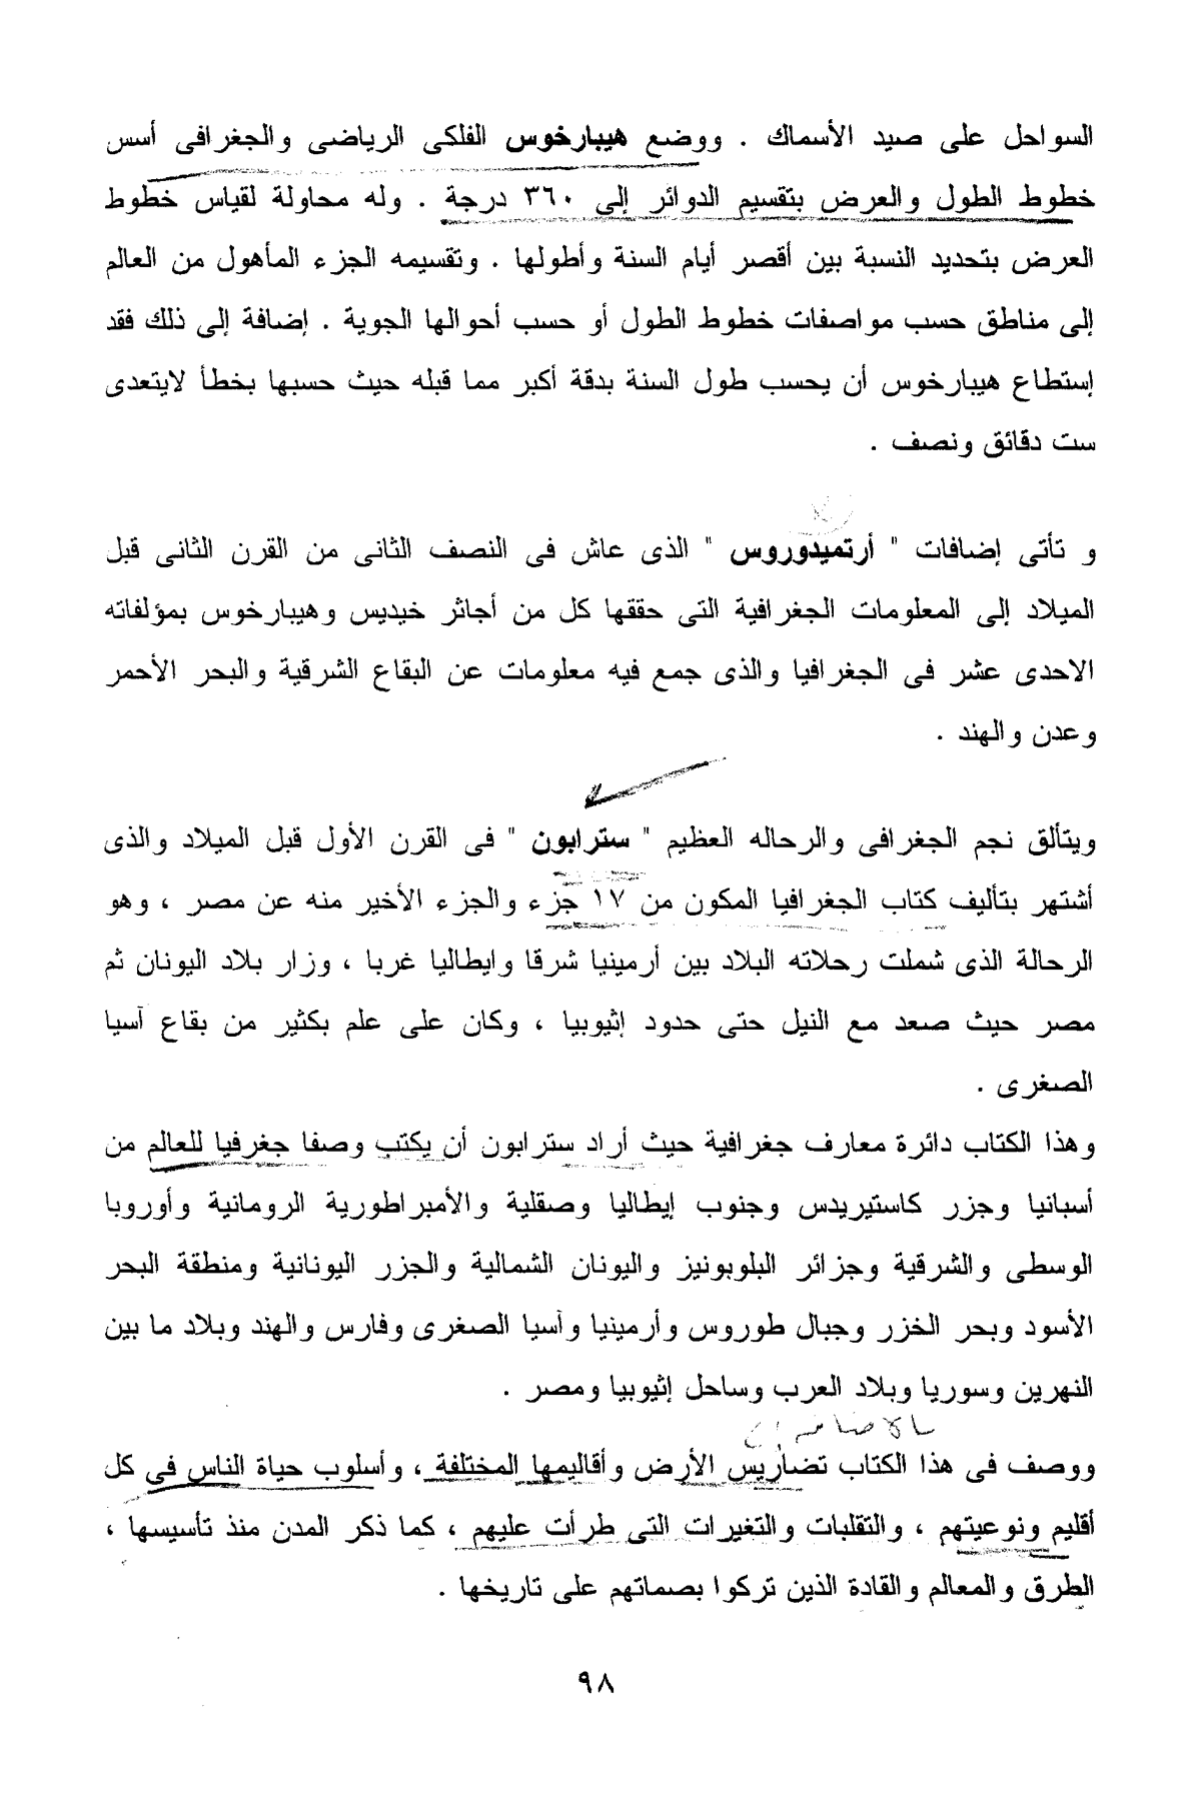 السواحل على صيد الأسماك . ووضع هيبارخوس الفلكى الرياضى والجغرافى أسس
خطوط الطول والعرض بتقسيم الدوائر إلى ٣٦٠ درجة . وله محاولة لقياس خطوط
العرض بتحديد النسبة بين أقصر أيام السنة وأطولها . وتقسيمه الجزء المأهول من العالم
إلى مناطق حسب مواصفات خطوط الطول أو حسب أحوالها الجوية . إضافة إلى ذلك فقد
إستطاع هيبارخوس أن يحسب طول السنة بدقة أكبر مما قبله حيث حسبها بخطأ لايتعدى
ست دقائق ونصف .
و تأتى إضافات " أرتميدوروس " الذى عاش فى النصف الثانى من القرن الثانى قبل
الميلاد إلى المعلومات الجغرافية التى حققها كل من أجاثر خيديس وهيبارخوس بمؤلفاته
الاحدى عشر فى الجغرافيا والذى جمع فيه معلومات عن البقاع الشرقية والبحر الأحمر
وعدن والهند .
ويتألق نجم الجغرافى والرحاله العظيم " سترابون " فى القرن الأول قبل الميلاد والذى
أشتهر بتأليف كتاب الجغرافيا المكون من ١٧ جزء والجزء الأخير منه عن مصر ، وهو
الرحالة الذى شملت رحلاته البلاد بين أرمينيا شرقا وايطاليا غربا ، وزار بلاد اليونان ثم
مصر حيث صعد مع النيل حتى حدود إثيوبيا ، وكان على علم بكثير من بقاع آسيا
الصغرى .
وهذا الكتاب دائرة معارف جغرافية حيث أراد سترابون أن يكتب وصفا جغرفيا للعالم من
أسبانيا وجزر كاستيريدس وجنوب إيطاليا وصقلية والأمبراطورية الرومانية وأوروبا
الوسطى والشرقية وجزائر البلوبونيز واليونان الشمالية والجزر اليونانية ومنطقة البحر
الأسود وبحر الخزر وجبال طوروس وأرمينيا وآسيا الصغرى وفارس والهند وبلاد ما بين
النهرين وسوريا وبلاد العرب وساحل إثيوبيا ومصر .
بالاضافه إلى
ووصف فى هذا الكتاب تضاريس الأرض وأقاليمها المختلفة ، وأسلوب حياة الناس فى كل
أقليم ونوعيتهم ، والتقلبات والتغيرات التى طرأت عليهم ، كما ذكر المدن منذ تأسيسها ،
الطرق والمعالم والقادة الذين تركوا بصماتهم على تاريخها .
٩٨